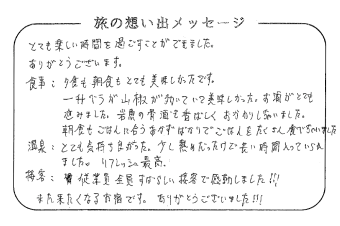 旅の想い出メッセージ
とても楽しい時間を過ごすことができました。
ありがとうございます。
食事：夕食も朝食もとても美味しかったです。
山椒が効いていて美味しかった。お酒がとても
進みました。岩魚の骨酒も香ばしくおかわりしちゃいました。
朝食もごはんに合うおかずばかりでごはんをたくさん食べちゃいました
温泉：とても気持ち良かった。少し熱めだったけど長い時間入っていられ
ました。リフレッシュ最高。
接客：従業員全員すばらしい接客で感動しました!!!
また来たくなるお宿です。ありがとうございました!!!